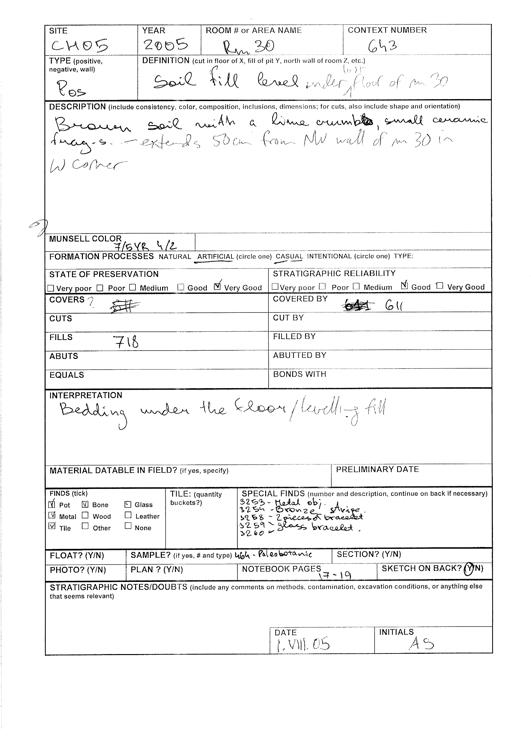 SITE YEAR ROOM # or AREA NAME CONTEXT NUMBER
CH05 2005 Rm 30 643
TYPE (positive, negative, wall) DEFINITION (cut in floor of X, fill of pit Y, north wall of room Z, etc.)
Pos Soil fill level under floor of rm 30
DESCRIPTION (include consistency, color, composition, inclusions, dimensions; for cuts, also include shape and orientation)
Brown soil with a lime crumbs, small ceramic
frag-s. - extends 50cm from NW wall of rm 30 in
W corner
MUNSELL COLOR
7/5YR 4/2
FORMATION PROCESSES NATURAL ARTIFICIAL (circle one) CASUAL INTENTIONAL (circle one) TYPE:
STATE OF PRESERVATION STRATIGRAPHIC RELIABILITY
Very poor Poor Medium Good Very Good Very poor Poor Medium Good Very Good
COVERS ? COVERED BY 611
CUTS CUT BY
FILLS 718 FILLED BY
ABUTS ABUTTED BY
EQUALS BONDS WITH
INTERPRETATION
Bedding under the floor/levelling fill
MATERIAL DATABLE IN FIELD? (if yes, specify) PRELIMINARY DATE
FINDS (tick) TILE: (quantity buckets?) SPECIAL FINDS (number and description, continue on back if necessary)
Pot Bone Glass
Metal Wood Leather
Tile Other None
3253 - Metal obj.
3254 - Bronze stripe
3258 - 2 pieces of bracelet
3259 - glass bracelet.
3260
FLOAT? (Y/N) SAMPLE? (if yes, # and type) 464 - Paleobotanic SECTION? (Y/N)
PHOTO? (Y/N) PLAN ? (Y/N) NOTEBOOK PAGES 17-19 SKETCH ON BACK? (Y/N)
STRATIGRAPHIC NOTES/DOUBTS (include any comments on methods, contamination, excavation conditions, or anything else
that seems relevant)
DATE INITIALS
1.VIII.05 AS